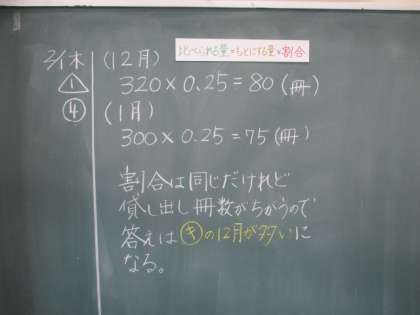 2/1木
△1
④
(12月)
比べられる量=もとにする量×割合
320×0.25=80(冊)
(1月)
300×0.25=75(冊)
割合は同じだけれど
貸し出し冊数がちがうので
答えは㋖の12月が多いに
なる。